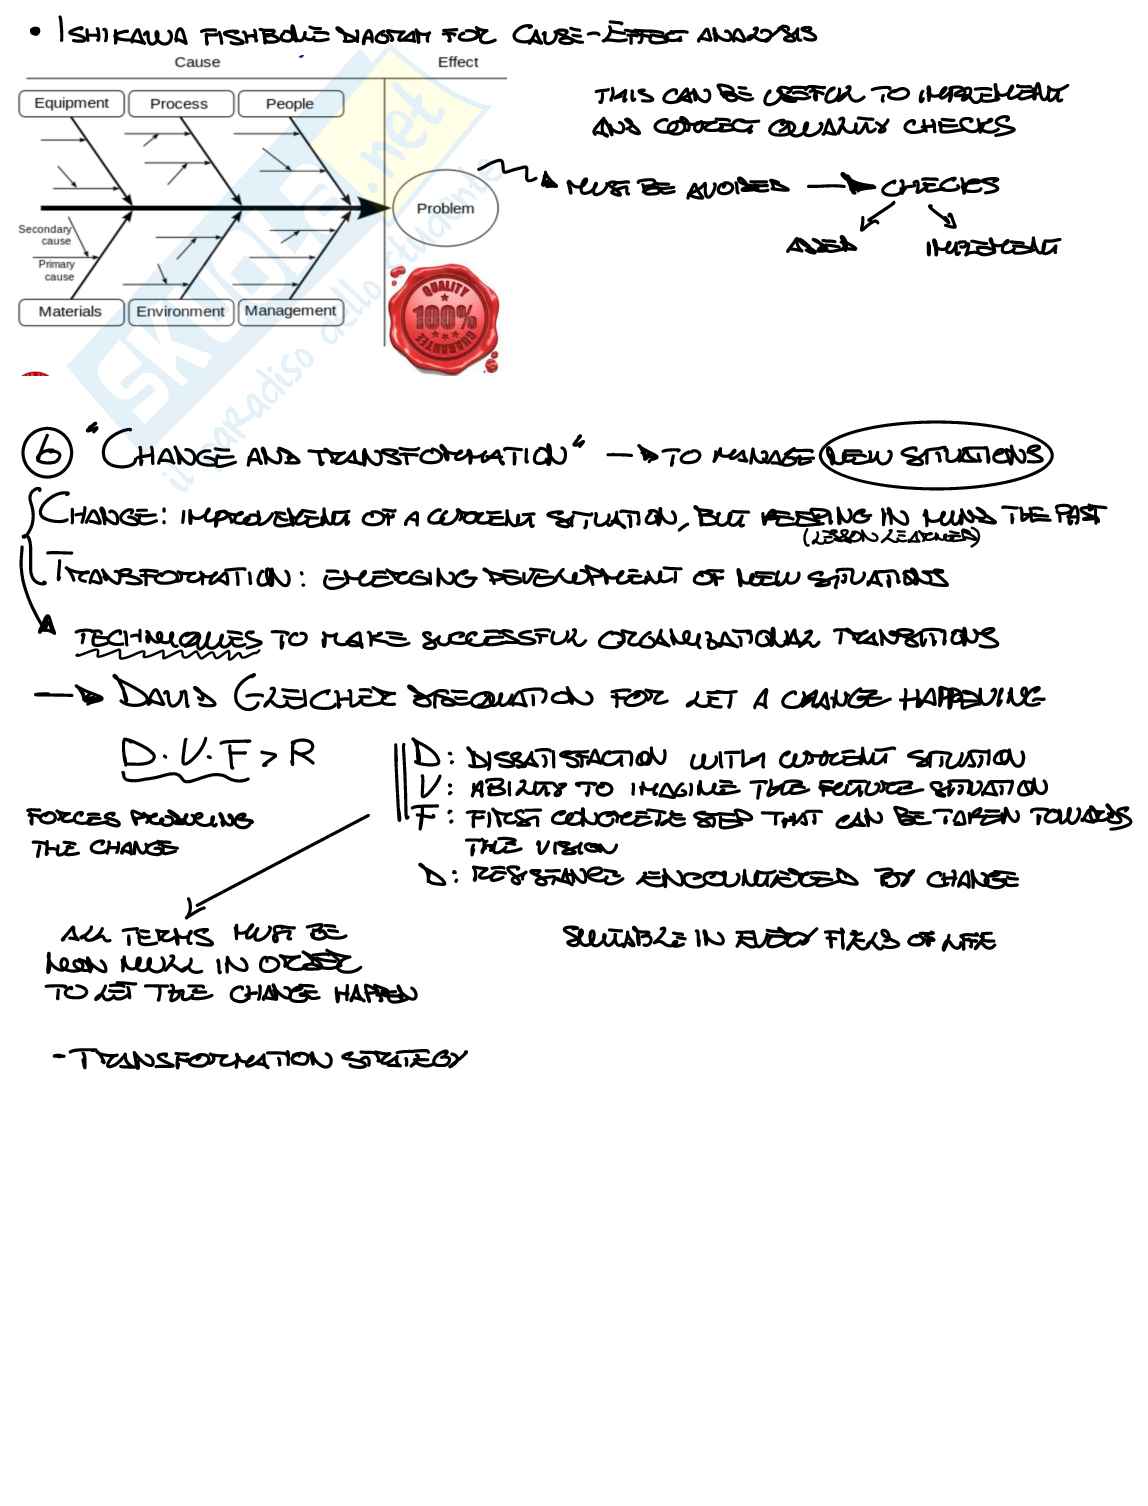 • ISHIKAWA FISHBONE DIAGRAM FOR CAUSE-EFFECT ANALYSIS
Cause Effect
Equipment Process People
Problem
Secondary cause
Primary cause
Materials Environment Management
QUALITY
100%
GUARANTEE
SKUOLA.net
il paradiso dello studente
THIS CAN BE USEFUL TO IMPLEMENT
AND CORRECT QUALITY CHECKS
MUST BE AVOIDED → CHECKS
ADDED IMPLEMENT
6 "CHANGE AND TRANSFORMATION" → TO MANAGE NEW SITUATIONS
CHANGE: IMPROVEMENT OF A CURRENT SITUATION, BUT KEEPING IN MIND THE PAST
(LESSON LEARNED)
TRANSFORMATION: EMERGING DEVELOPMENT OF NEW SITUATIONS
TECHNIQUES TO MAKE SUCCESSFUL ORGANIZATIONAL TRANSITIONS
→ DAVID GLEICHER DISEQUATION FOR LET A CHANGE HAPPENING
D·V·F > R
FORCES PRODUCING
THE CHANGE
D: DISSATISFACTION WITH CURRENT SITUATION
V: ABILITY TO IMAGINE THE FUTURE SITUATION
F: FIRST CONCRETE STEP THAT CAN BE TAKEN TOWARDS
THE VISION
D: RESISTANCE ENCOUNTERED BY CHANGE
ALL TERMS MUST BE
NON NULL IN ORDER
TO LET THE CHANGE HAPPEN
SUITABLE IN EVERY FIELD OF LIFE
- TRANSFORMATION STRATEGY